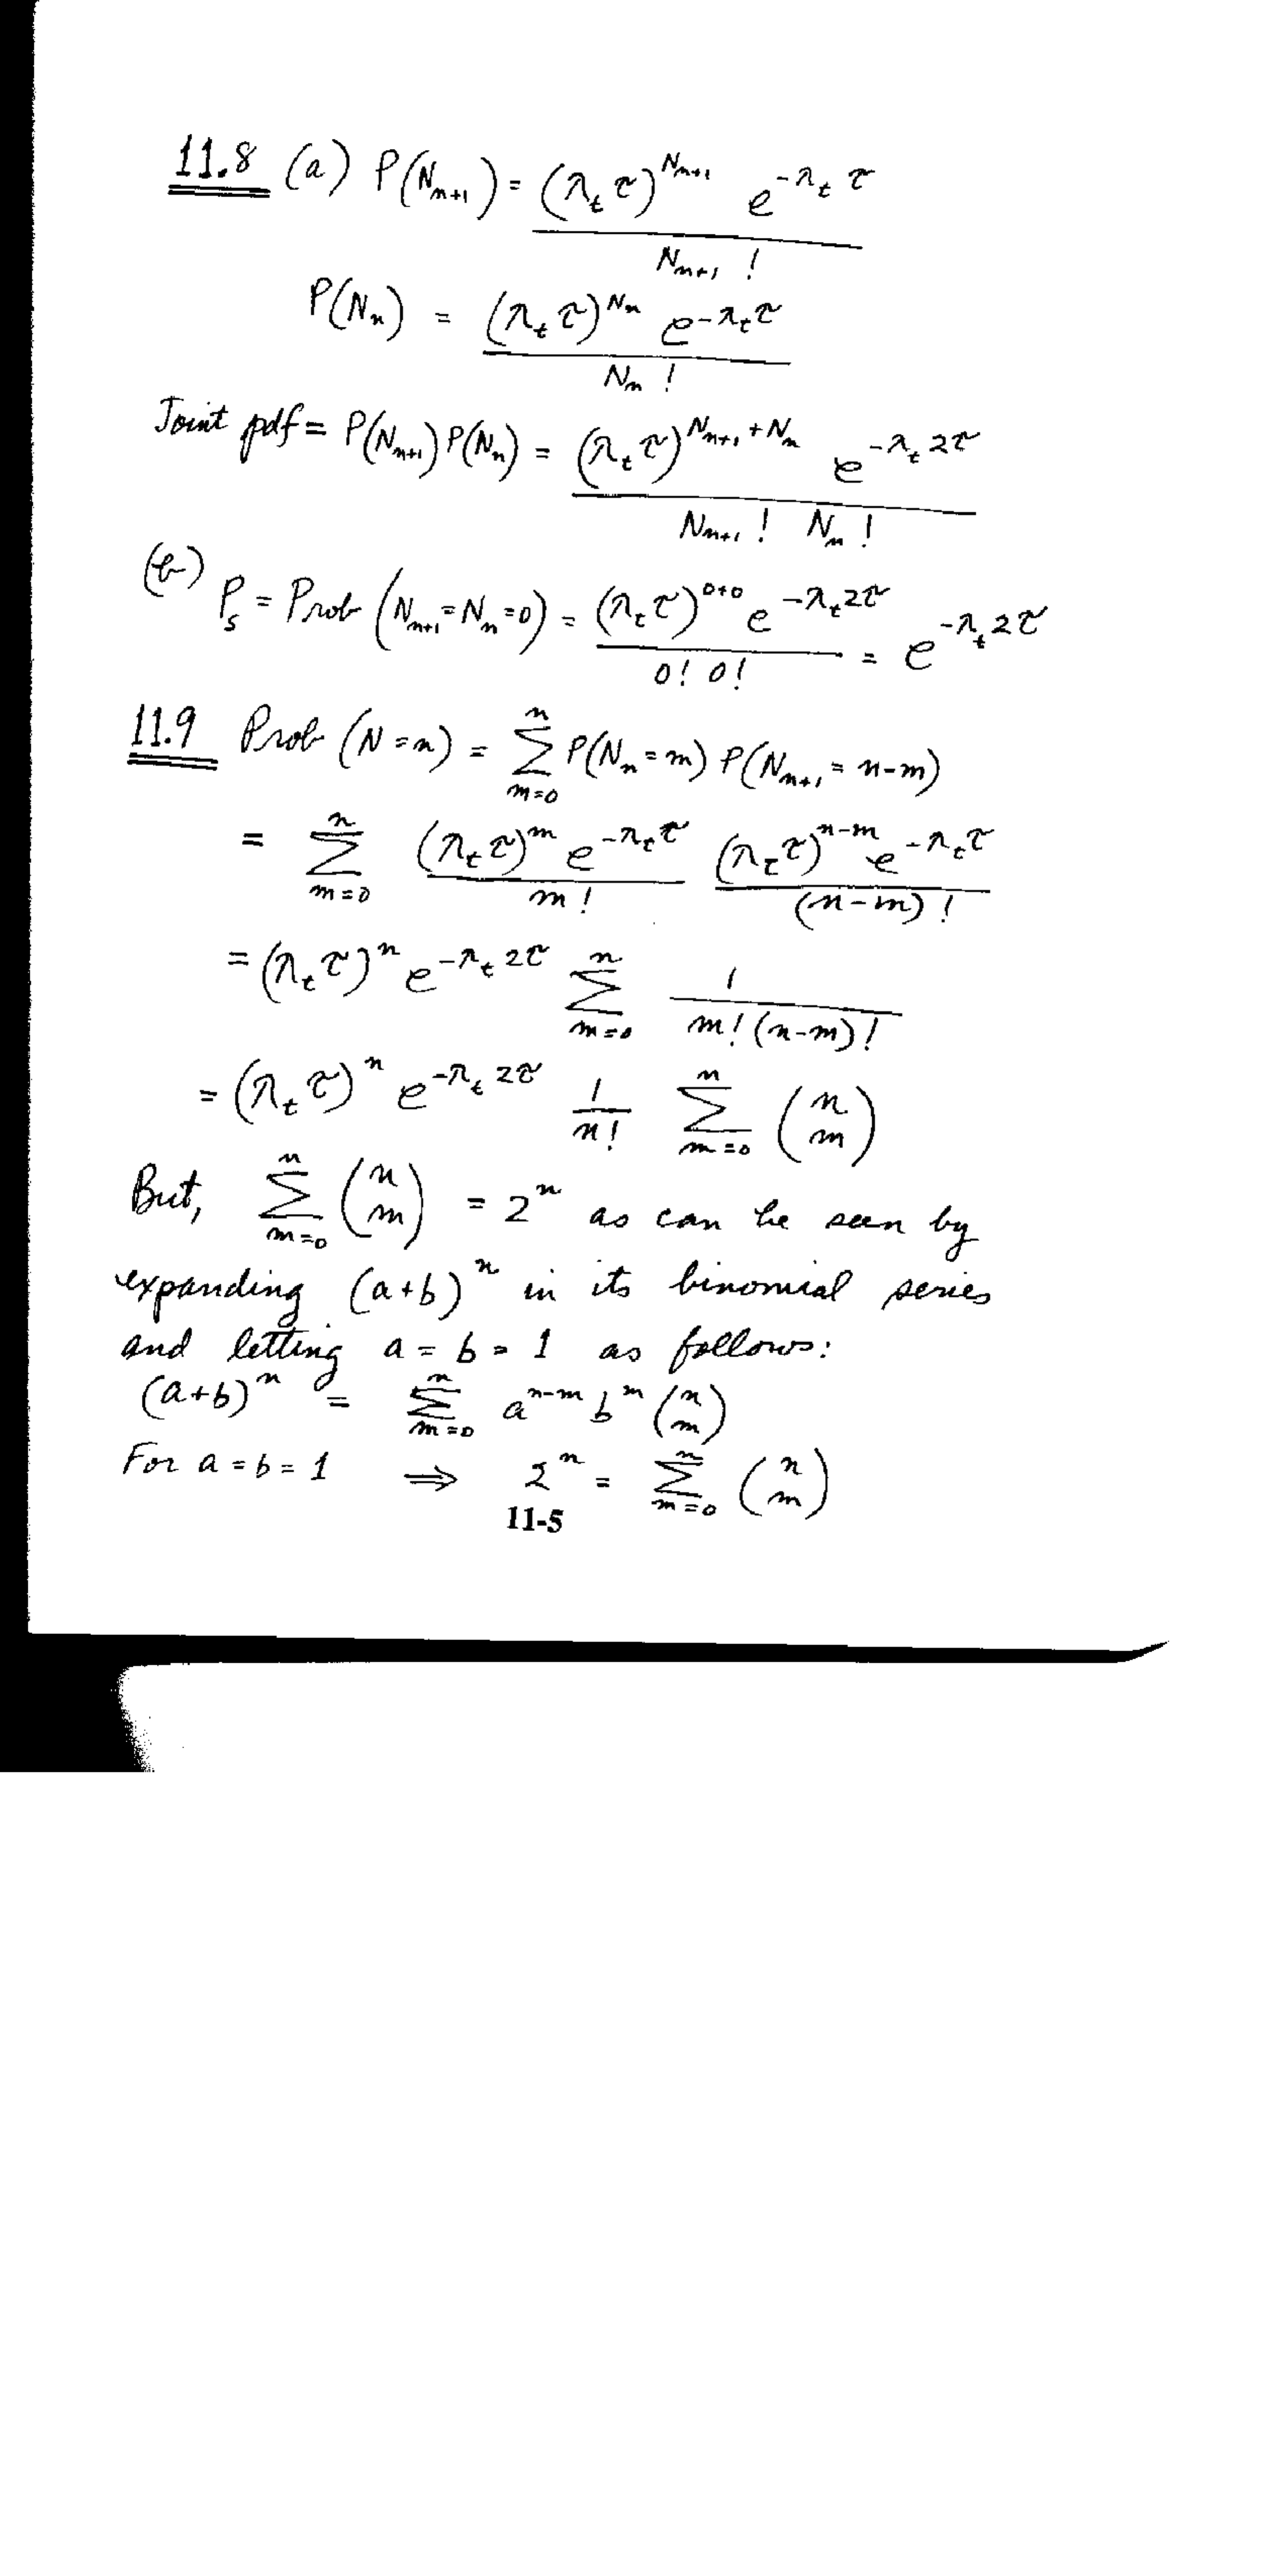 11.8 (a) P(N_{n+1}) = \frac{(λ_t τ)^{N_{n+1}} e^{-λ_t τ}}{N_{n+1} !}
P(N_n) = \frac{(λ_t τ)^{N_n} e^{-λ_t τ}}{N_n !}
Joint pdf = P(N_{n+1}) P(N_n) = \frac{(λ_t τ)^{N_{n+1} + N_n} e^{-λ_t 2τ}}{N_{n+1} ! N_n !}
(b) P_s = Prob (N_{n+1} = N_n = 0) = \frac{(λ_t τ)^{0+0} e^{-λ_t 2τ}}{0! 0!} = e^{-λ_t 2τ}
11.9 Prob (N = n) = \sum_{m=0}^{n} P(N_n = m) P(N_{n+1} = n-m)
= \sum_{m=0}^{n} \frac{(λ_t τ)^m e^{-λ_t τ}}{m !} \frac{(λ_t τ)^{n-m} e^{-λ_t τ}}{(n-m) !}
= (λ_t τ)^n e^{-λ_t 2τ} \sum_{m=0}^{n} \frac{1}{m! (n-m)!}
= (λ_t τ)^n e^{-λ_t 2τ} \frac{1}{n!} \sum_{m=0}^{n} \binom{n}{m}
But, \sum_{m=0}^{n} \binom{n}{m} = 2^n as can be seen by
expanding (a+b)^n in its binomial series
and letting a = b = 1 as follows:
(a+b)^n = \sum_{m=0}^{n} a^{n-m} b^m \binom{n}{m}
For a = b = 1 ⇒ 2^n = \sum_{m=0}^{n} \binom{n}{m}
11-5